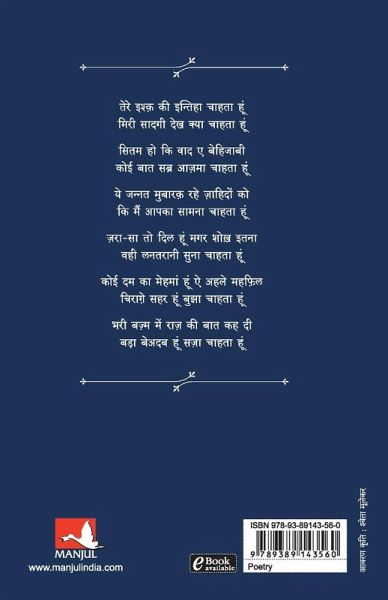 तेरे इश्क़ की इन्तिहा चाहता हूं
मिरी सादगी देख क्या चाहता हूं
सितम हो कि वाद ए बेहिजाबी
कोई बात सब्र आज़मा चाहता हूं
ये जन्नत मुबारक़ रहे ज़ाहिदों को
कि मैं आपका सामना चाहता हूं
ज़रा-सा तो दिल हूं मगर शोख़ इतना
वही लनतरानी सुना चाहता हूं
कोई दम का मेहमां हूं ऐ अहले महफ़िल
चिराग़े सहर हूं बुझा चाहता हूं
भरी बज़्म में राज़ की बात कह दी
बड़ा बेअदब हूं सज़ा चाहता हूं
MANJUL
www.manjulindia.com
eBook
available
ISBN 978-93-89143-56-0
9 789389 143560
Poetry
आवरण कृति : श्वेता मूलेकर